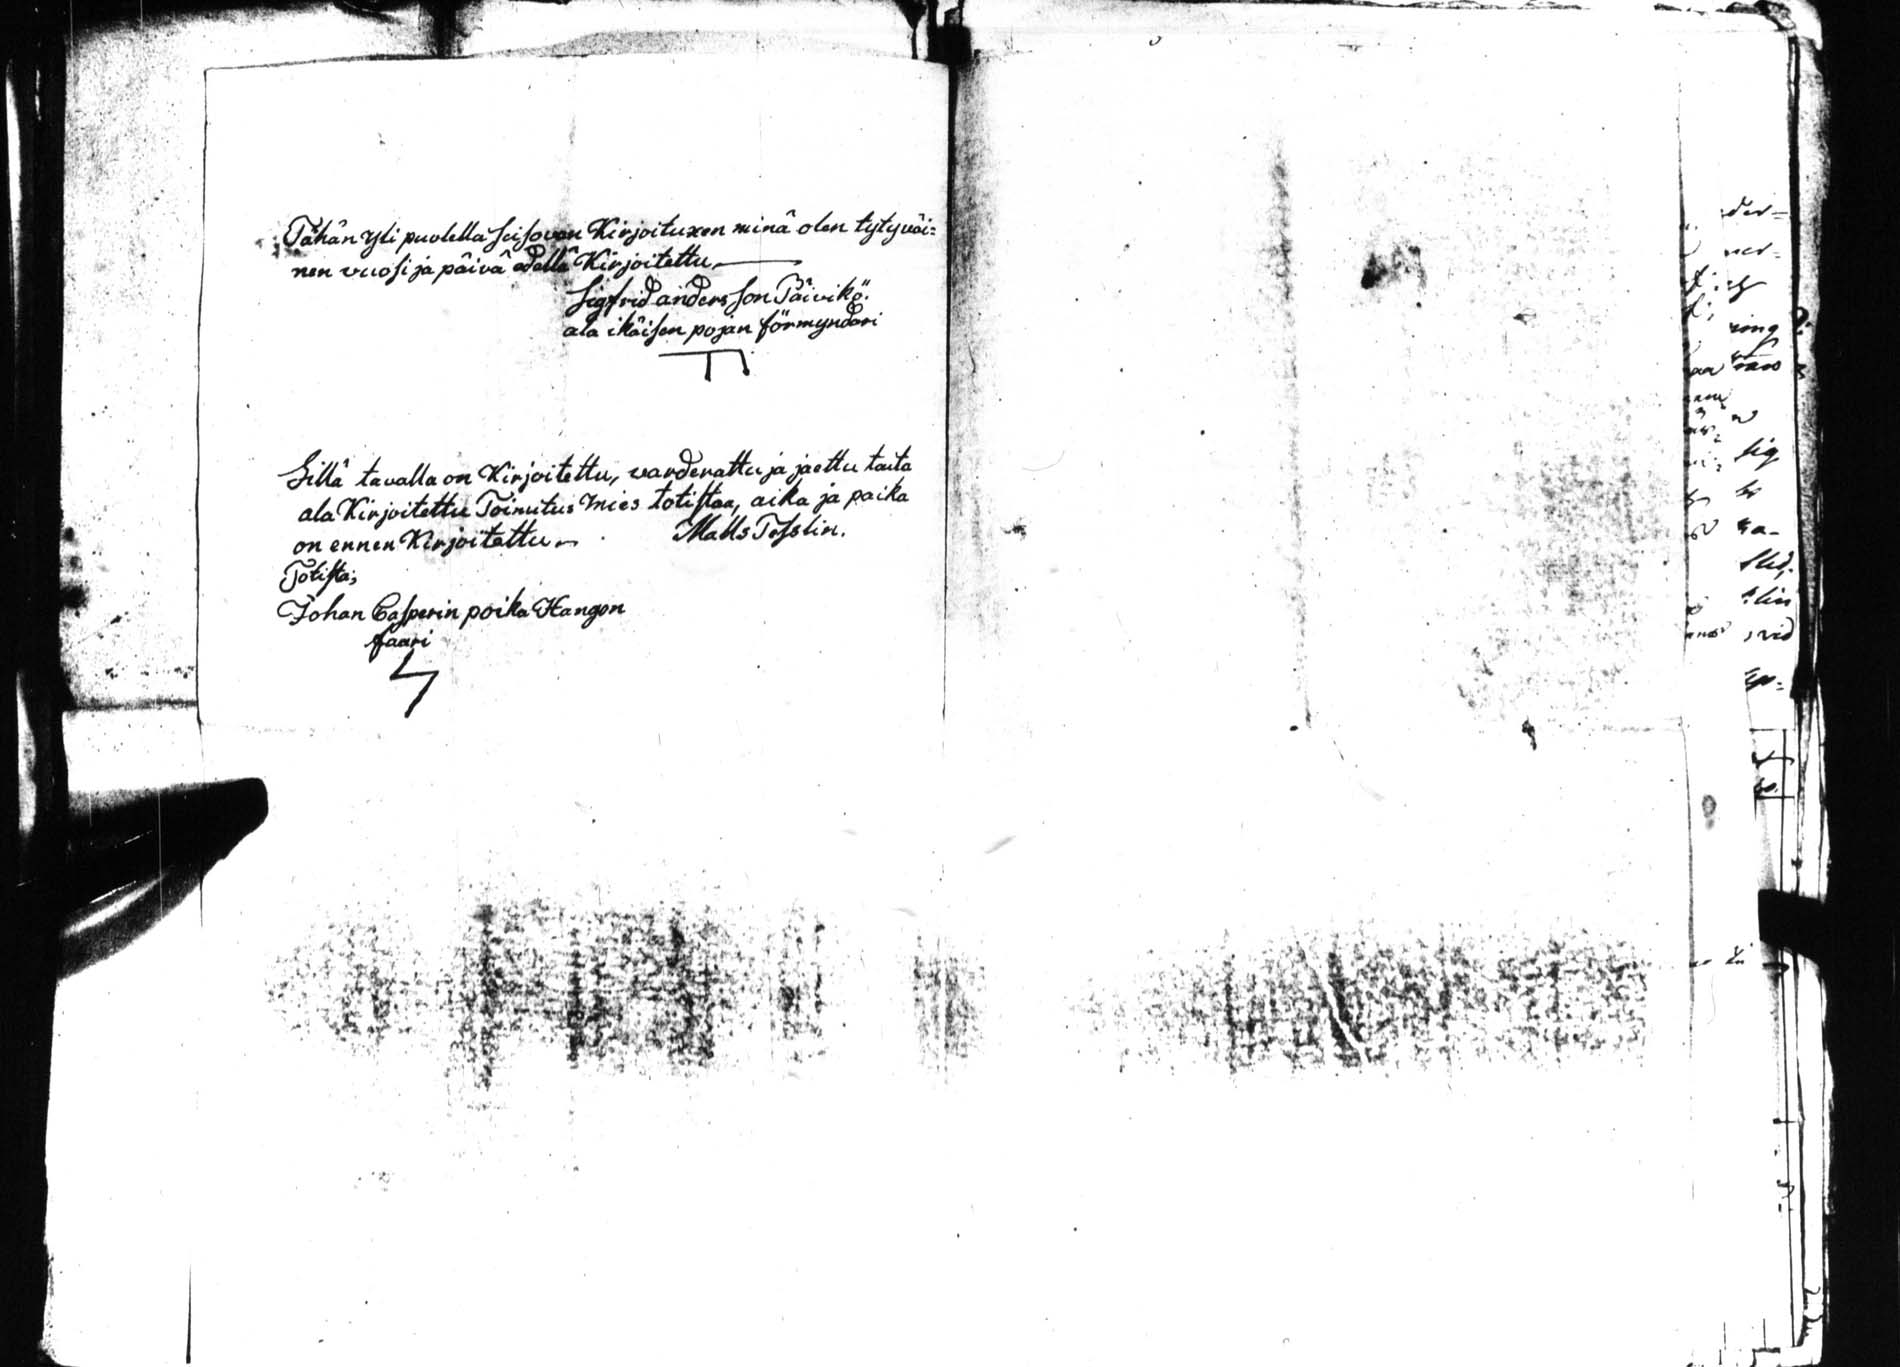 Tähän yli puolella seisovan Kirjoituxen minä olen tytyväi=
nen vuosi ja päivä edellä Kirjoitettu
Sigfrid andersson Päivikö.
ala ikäisen pojan förmyndari
Sillä tavalla on Kirjoitettu, varderattu ja jaettu taita
ala Kirjoitettu Toimitus mies totistaa, aika ja paika
on ennen Kirjoitettu
Matts Tesslin.
Totista;
Johan Casperin poika Hangon
faari